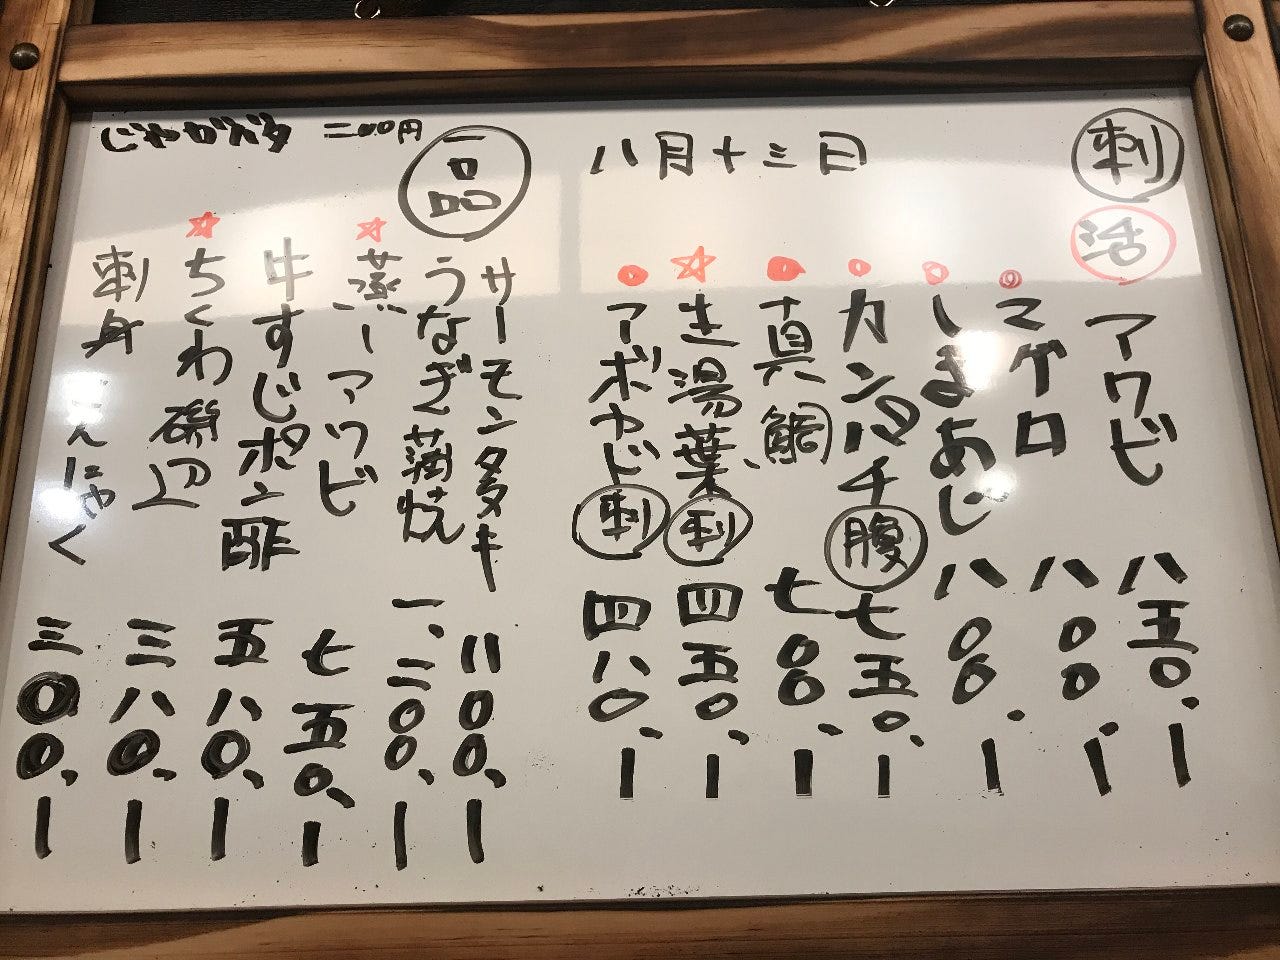 刺
活 アワビ 八五〇、ー
マグロ 八〇〇、ー
しまあじ 八〇〇、ー
カンパチ 腹 七五〇、ー
真鯛 七〇〇、ー
生湯葉 刺 四五〇、ー
アボカド 刺 四八〇、ー
八月十三日
一品
サーモンタタキ 八〇〇、ー
うなぎ蒲焼 一、二〇〇、ー
蒸しアワビ 七五〇、ー
牛すじポン酢 五八〇、ー
ちくわ磯辺 三八〇、ー
刺身こんにゃく 三〇〇、ー
じゃがバタ 二〇〇円